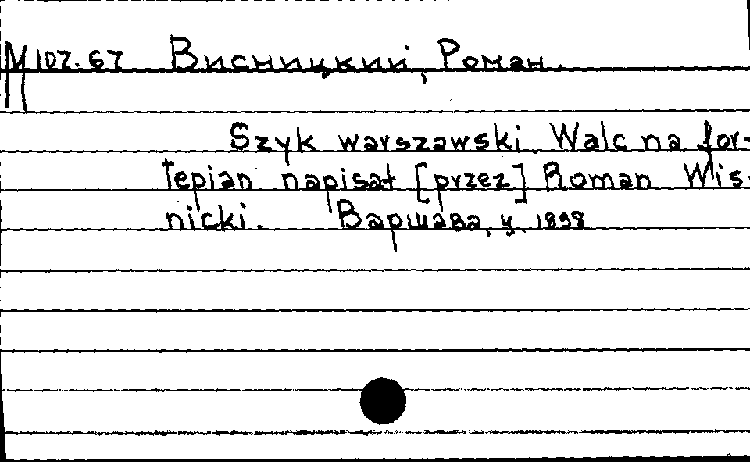 М 107.67 Висницкий, Роман.
Szyk warszawski. Walc na for-
tepian napisał [przez] Roman Wis-
nicki. Варшава, ц. 1898